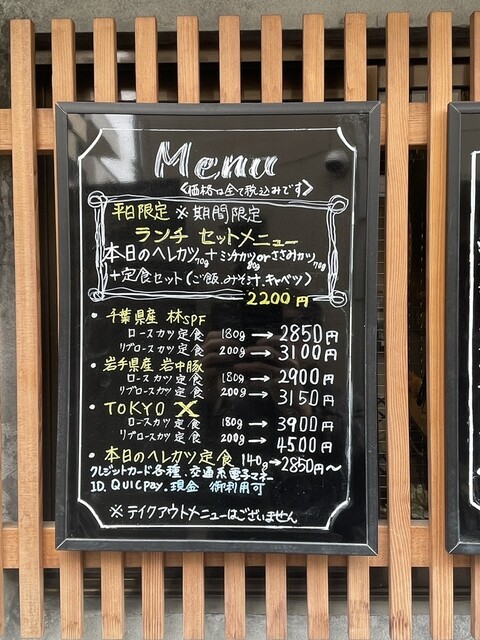 Menu
<価格は全て税込みです>
平日限定 ※期間限定
ランチ セットメニュー
本日のヘレカツ70g+ミンチカツ80g orささみカツ70g
+定食セット(ご飯.みそ汁.キャベツ)
2200円
・千葉県産 林SPF
ロースカツ定食 180g→2850円
リブロースカツ定食 200g→3100円
・岩手県産 岩中豚
ロースカツ定食 180g→2900円
リブロースカツ定食 200g→3150円
・TOKYO X
ロースカツ定食 180g→3900円
リブロースカツ定食 200g→4500円
・本日のヘレカツ定食 140g→2850円〜
クレジットカード各種.交通系電子マネー
ID.QUICPay.現金 御利用可
※テイクアウトメニューはございません